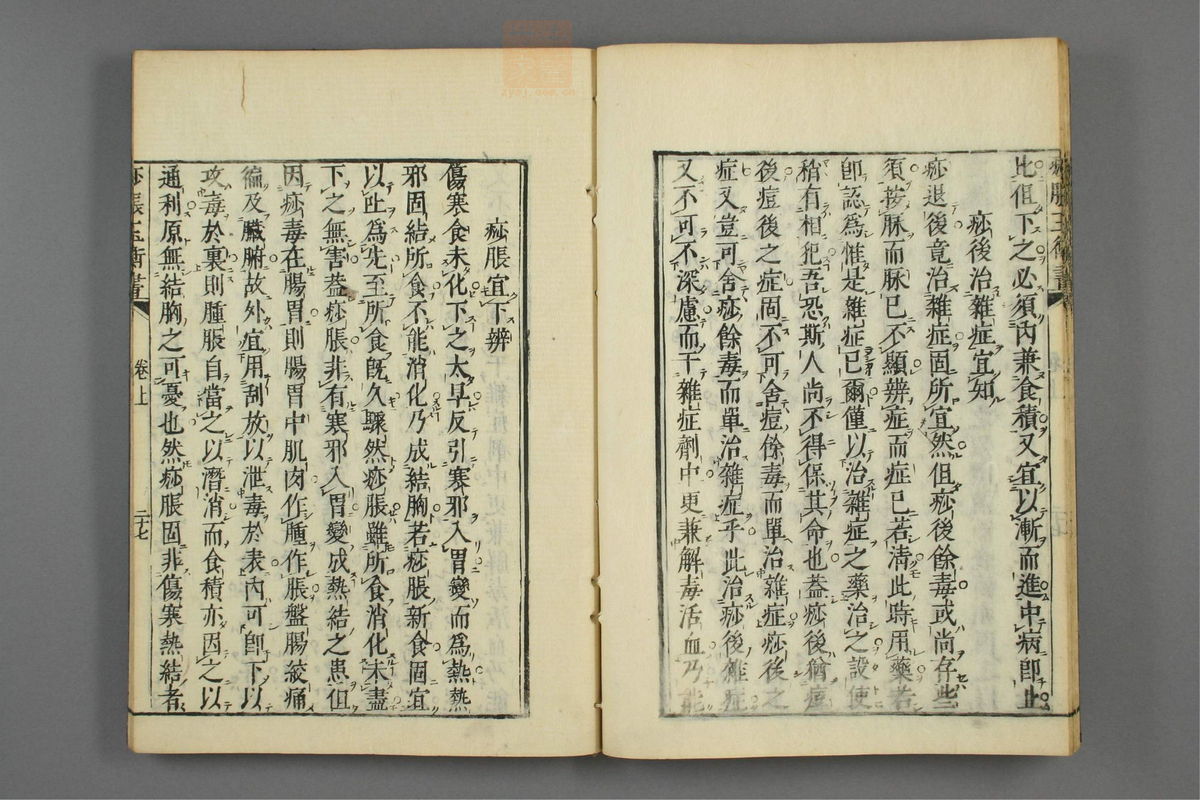 痧脹玉衡書
比但下之必須内兼食積又宜以漸而進中病卽止
痧後治雜症宜知
痧退後竟治雜症固所宜然但痧後餘毒或尚存些
須按脉而脉已不顯辨症而症已若清此時用藥若
卽認爲惟是雜症已爾僅以治雜症之藥治之設使
稍有相犯吾恐斯人尚不得保其命也葢痧後猶痘
後痘後之症固不可舍痘餘毒而單治雜症痧後之
症又豈可舍痧餘毒而單治雜症乎此治痧後雜症
又不可不深慮而于雜症劑中更兼解毒活血乃能
痧脹宜下辨
傷寒食未化下之太早反引寒邪入胃變而爲熱熱
邪固結所食不能消化乃成結胸若痧脹新食固宜
以吐爲先至所食旣久驟然痧脹雖所食消化未盡
下之無害葢痧脹非有寒邪入胃變成熱結之患但
因痧毒在腸胃則腸胃中肌肉作腫作脹盤腸絞痛
徧及臟腑故外宜用刮放以泄毒於表内可卽下以
攻毒於裏則腫脹自當之以潛消而食積亦因之以
通利原無結胸之可憂也然痧脹固非傷寒熱結者
痧脹玉衡書 卷上 二十七